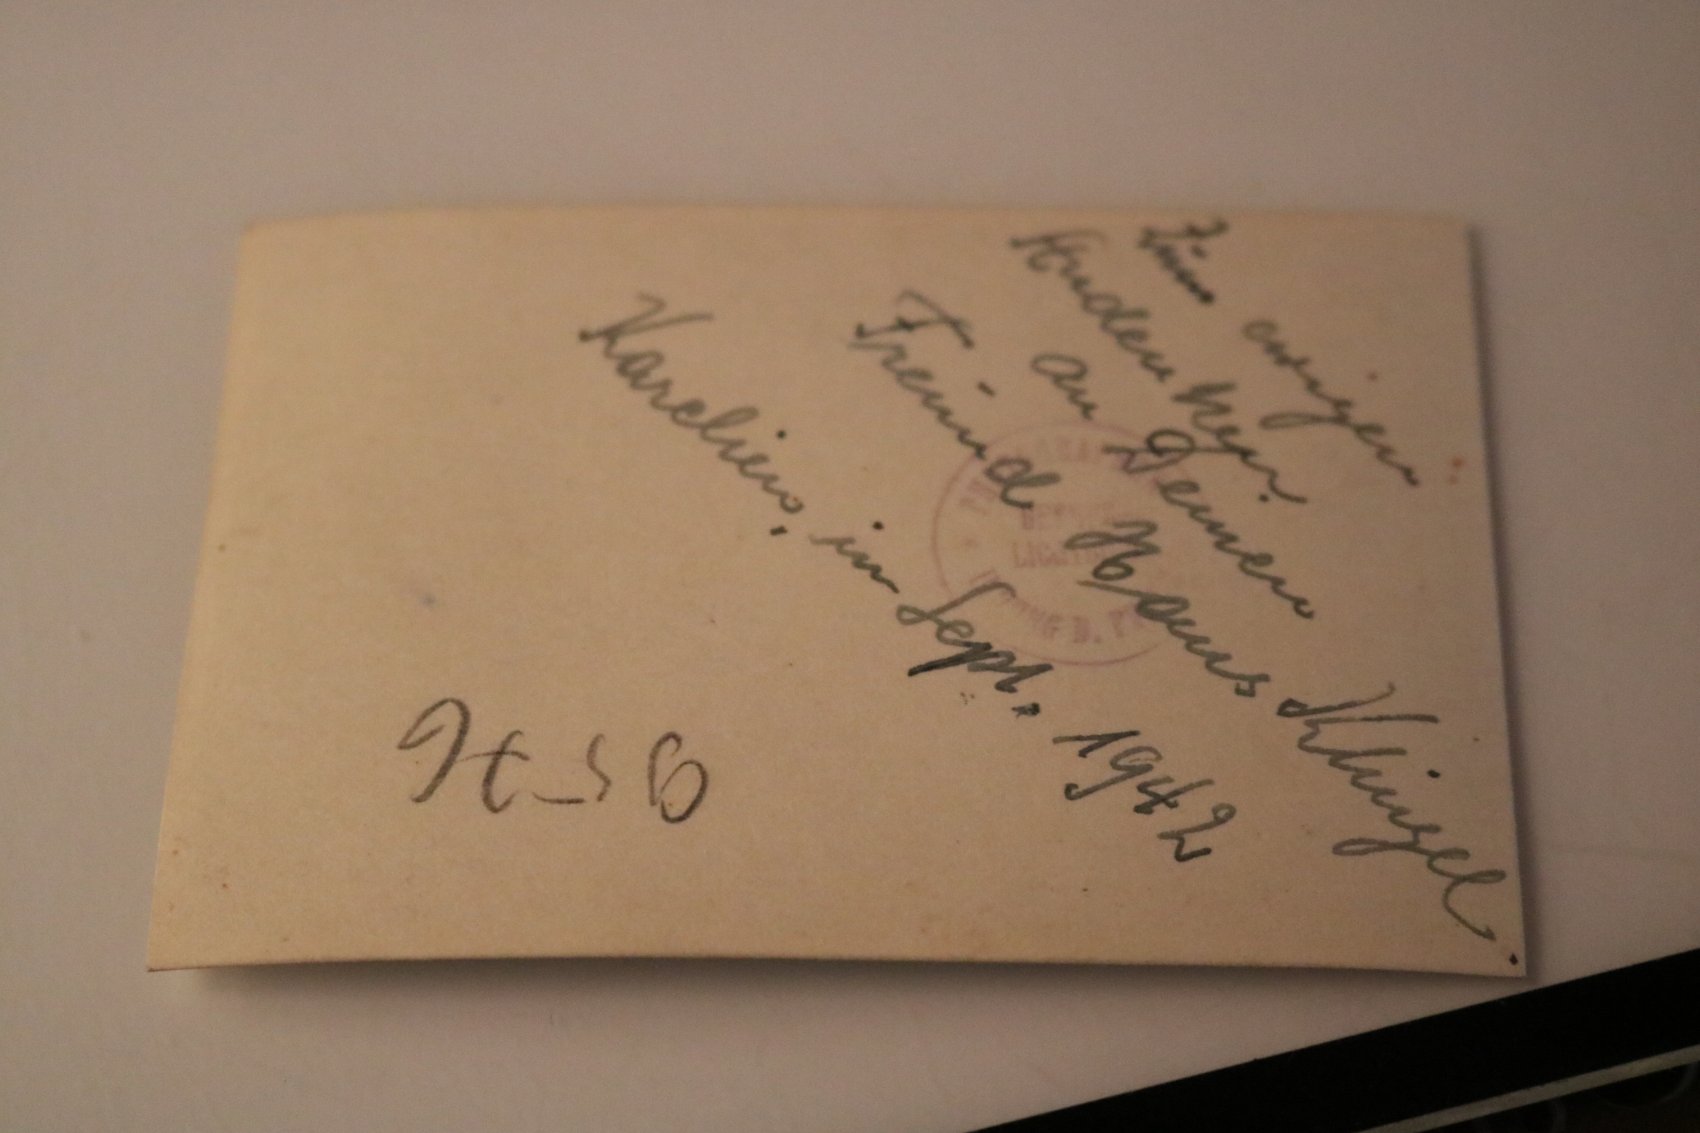 Zum ewigen
Andenken
an Deinen
Freund Hans Klingel
Karelien, im Sept. 1942